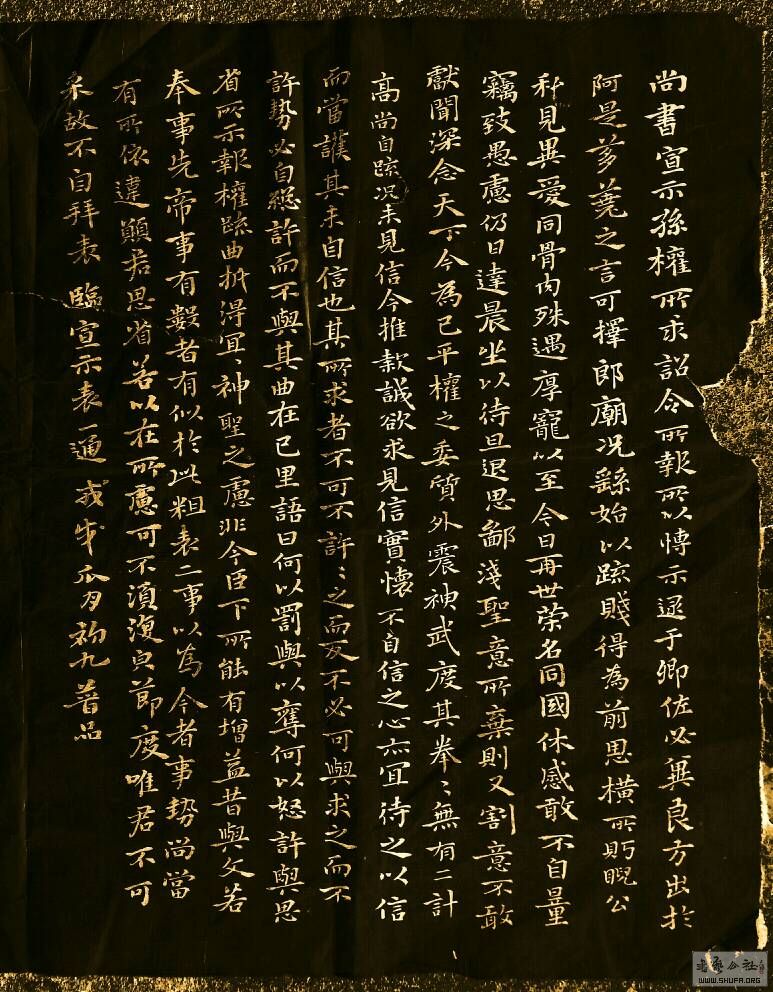 尚書宣示孫權所求詔令所報所以博示逮于卿佐必冀良方出於
阿是芻蕘之言可擇郎廟况繇始以疏賤得為前恩橫所眄睨公
私見異愛同骨肉殊遇厚寵以至今日再世荣名同國休慼敢不自量
竊致愚慮仍日達晨坐以待旦退思鄙淺聖意所棄則又割意不敢
獻聞深念天下今為已平權之委質外震神武度其拳〻無有二計
高尚自疏况未見信今推款誠欲求見信實懷不自信之心亦宜待之以信
而當護其未自信也其所求者不可不許〻之而反不必可與求之而不
許勢必自絕許而不與其曲在己里語曰何以罰與以奪何以怒許與思
省所示報權疏曲折得宜〻神聖之慮非今臣下所能有增益昔與文若
奉事先帝事有數者有似於此粗表二事以為今者事勢尚當
有所依違願君思省若以在所慮可不須復與節度唯君不可
采故不自拜表 臨宣示表一通 戎 瓜月初九 普品
WWW.SHUFA.ORG